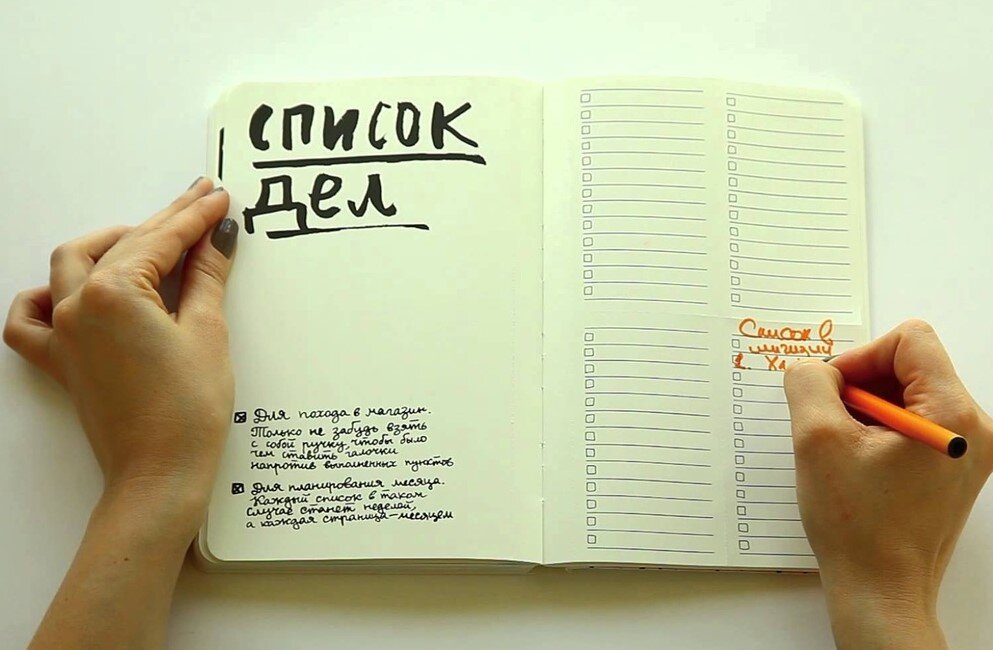 список
дел
Для похода в магазин.
Только не забудь взять
с собой ручку, чтобы было
чем ставить галочки
напротив выполненных пунктов
Для планирования месяца.
Каждый список в таком
случае станет неделей,
а каждая страница-месяцем
Список в
1.